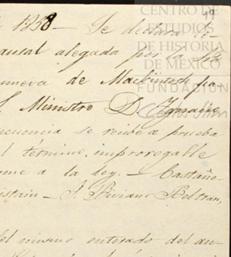 1858 — Se declara
causal alegada por
nueva de Mackintosh
Ministro D. Ignacio
cuencia se recibe a prueba
el término improrrogable
me a la ley. — Castaño
— J. Mariano Beltran,
del mismo enterado del au
CENTRO DE
ESTUDIOS
DE HISTORIA
DE MÉXICO
FUNDACIÓN